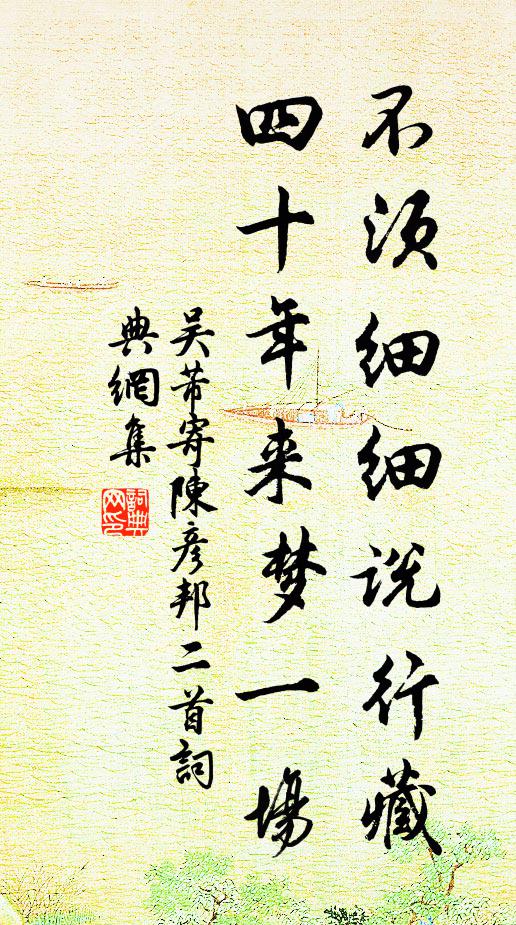 不须细细说行藏
四十年来梦一場
吴芾寄陳彦邦二首詞
典網集
詞典网印